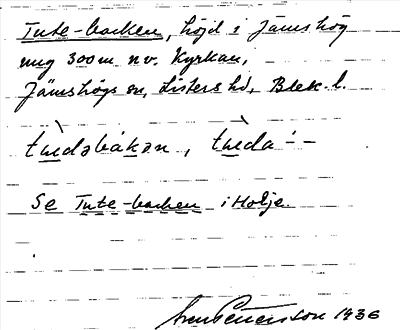 Tute-backen, höjd i Jämshög
ung 300 m nv. Kyrkan,
Jämshögs sn, Listers hd, Blek. l.
tu̇dəbàkən, tu̇da ÷ –
Se Tute-backen i Holje.
Sven Pettersson 1936